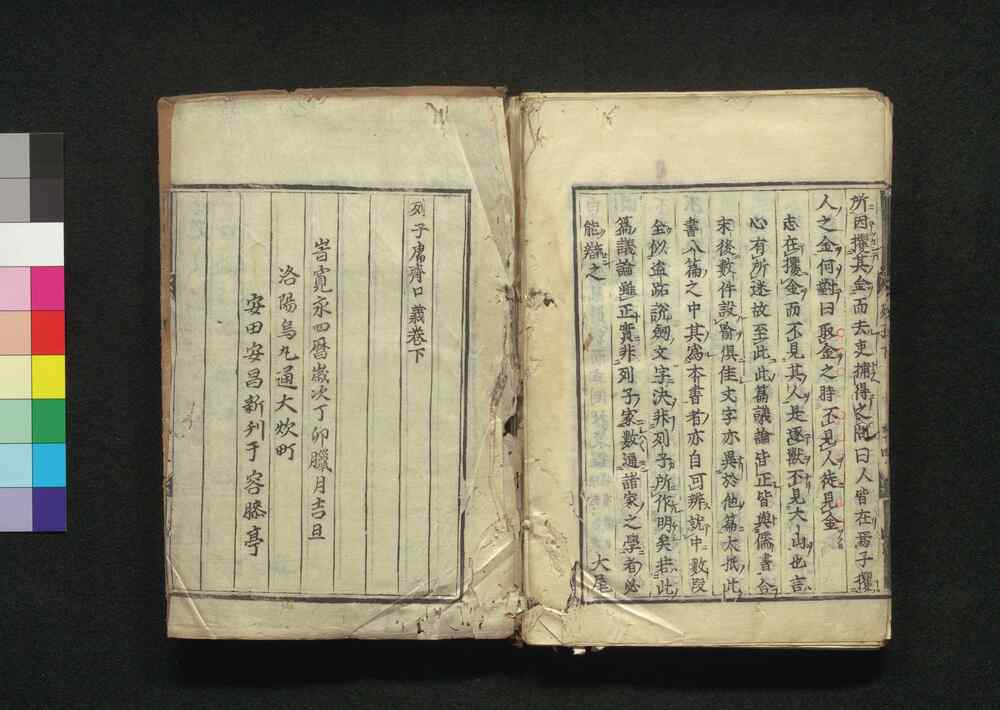 所因攫其金而去吏捕得之問曰人皆在焉子攫
人之金何對曰取金之時不見人徒見金
志在攫金而不見其人是逐獸不見大山也言
心有所迷故至此此篇議論皆正皆與儒書合
末後數件設喩俱佳文字亦異於他篇大抵此
書八篇之中其爲本書者亦自可辨說中數段
全似盗跖說劔文字决非列子所作明矣若此
篇議論雖正實非列子家數通諸家之學者必
能辯之 大尾
列子鬳齋口義卷下
旹寛永四暦歳次丁卯臘月吉旦
洛陽烏丸通大炊町
安田安昌新刊于容膝亭